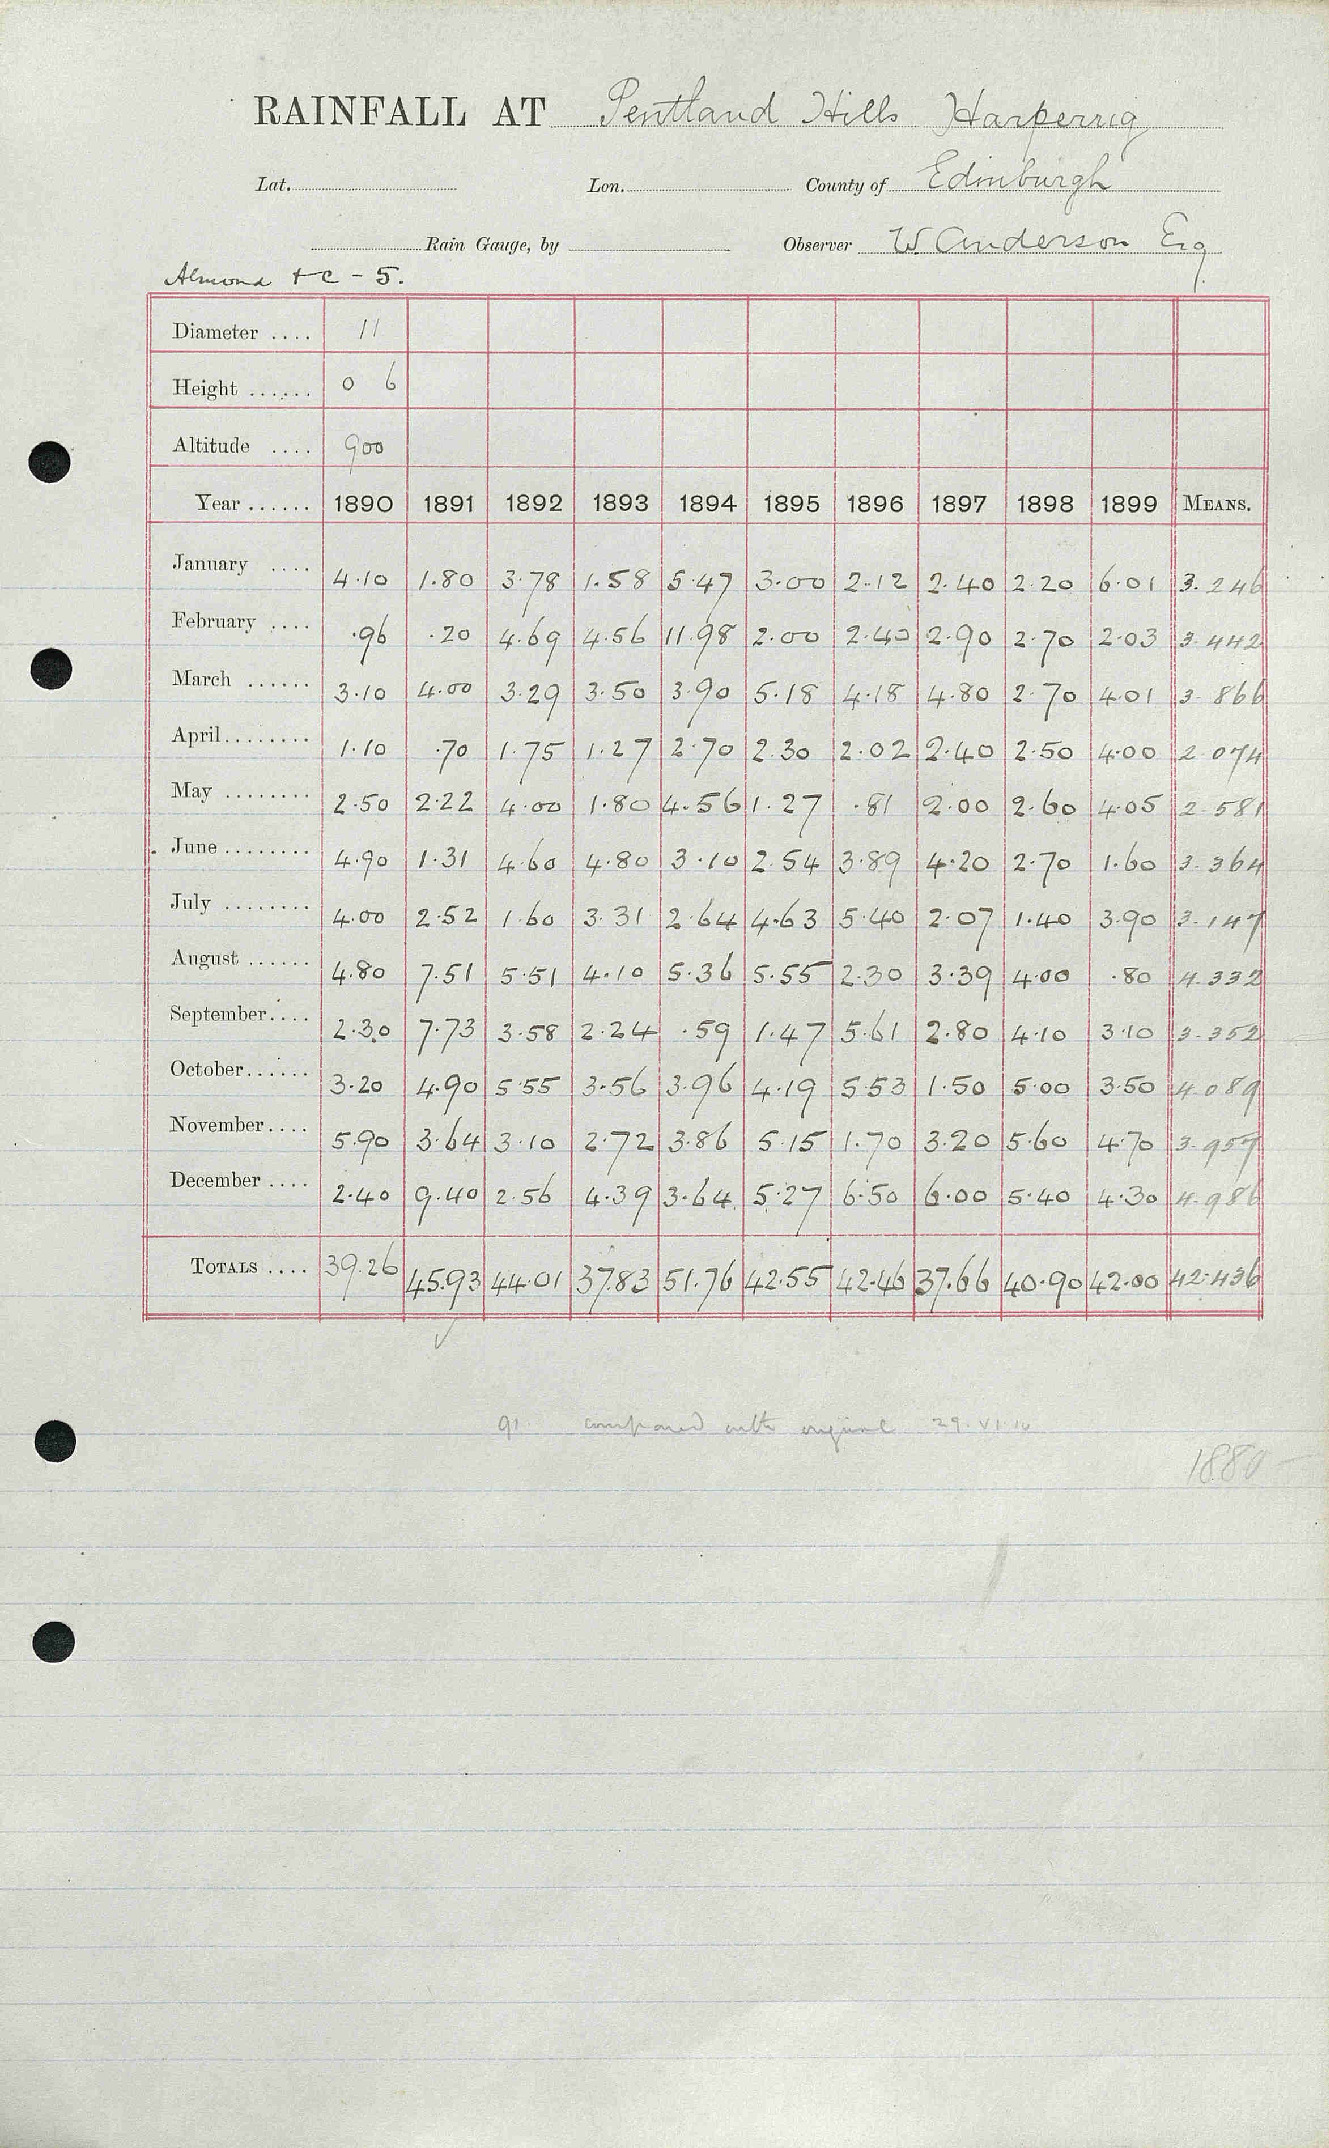 RAINFALL AT Pentland Hills Harperrig
Lat. Lon. County of Edinburgh
Rain Gauge, by Observer W. Anderson Esq.
Almond &c - 5.
Diameter .... 11
Height ...... 0 6
Altitude .... 900
Year ...... 1890 1891 1892 1893 1894 1895 1896 1897 1898 1899 MEANS.
January .... 4.10 1.80 3.78 1.58 5.47 3.00 2.12 2.40 2.20 6.01 3.246
February .... .96 .20 4.69 4.56 11.98 2.00 2.40 2.90 2.70 2.03 3.442
March ...... 3.10 4.00 3.29 3.50 3.90 5.18 4.18 4.80 2.70 4.01 3.866
April........ 1.10 .70 1.75 1.27 2.70 2.30 2.02 2.40 2.50 4.00 2.074
May ........ 2.50 2.22 4.00 1.80 4.56 1.27 .81 2.00 2.60 4.05 2.581
June ........ 4.90 1.31 4.60 4.80 3.10 2.54 3.89 4.20 2.70 1.60 3.364
July ........ 4.00 2.52 1.60 3.31 2.64 4.63 5.40 2.07 1.40 3.90 3.147
August ...... 4.80 7.51 5.51 4.10 5.36 5.55 2.30 3.39 4.00 .80 4.332
September.... 2.30 7.73 3.58 2.24 .59 1.47 5.61 2.80 4.10 3.10 3.352
October...... 3.20 4.90 5.55 3.56 3.96 4.19 5.53 1.50 5.00 3.50 4.089
November.... 5.90 3.64 3.10 2.72 3.86 5.15 1.70 3.20 5.60 4.70 3.957
December .... 2.40 9.40 2.56 4.39 3.64 5.27 6.50 6.00 5.40 4.30 4.986
TOTALS .... 39.26 45.93 44.01 37.83 51.76 42.55 42.46 37.66 40.90 42.00 42.436
91 compared with original 29.VI.10
1880 -